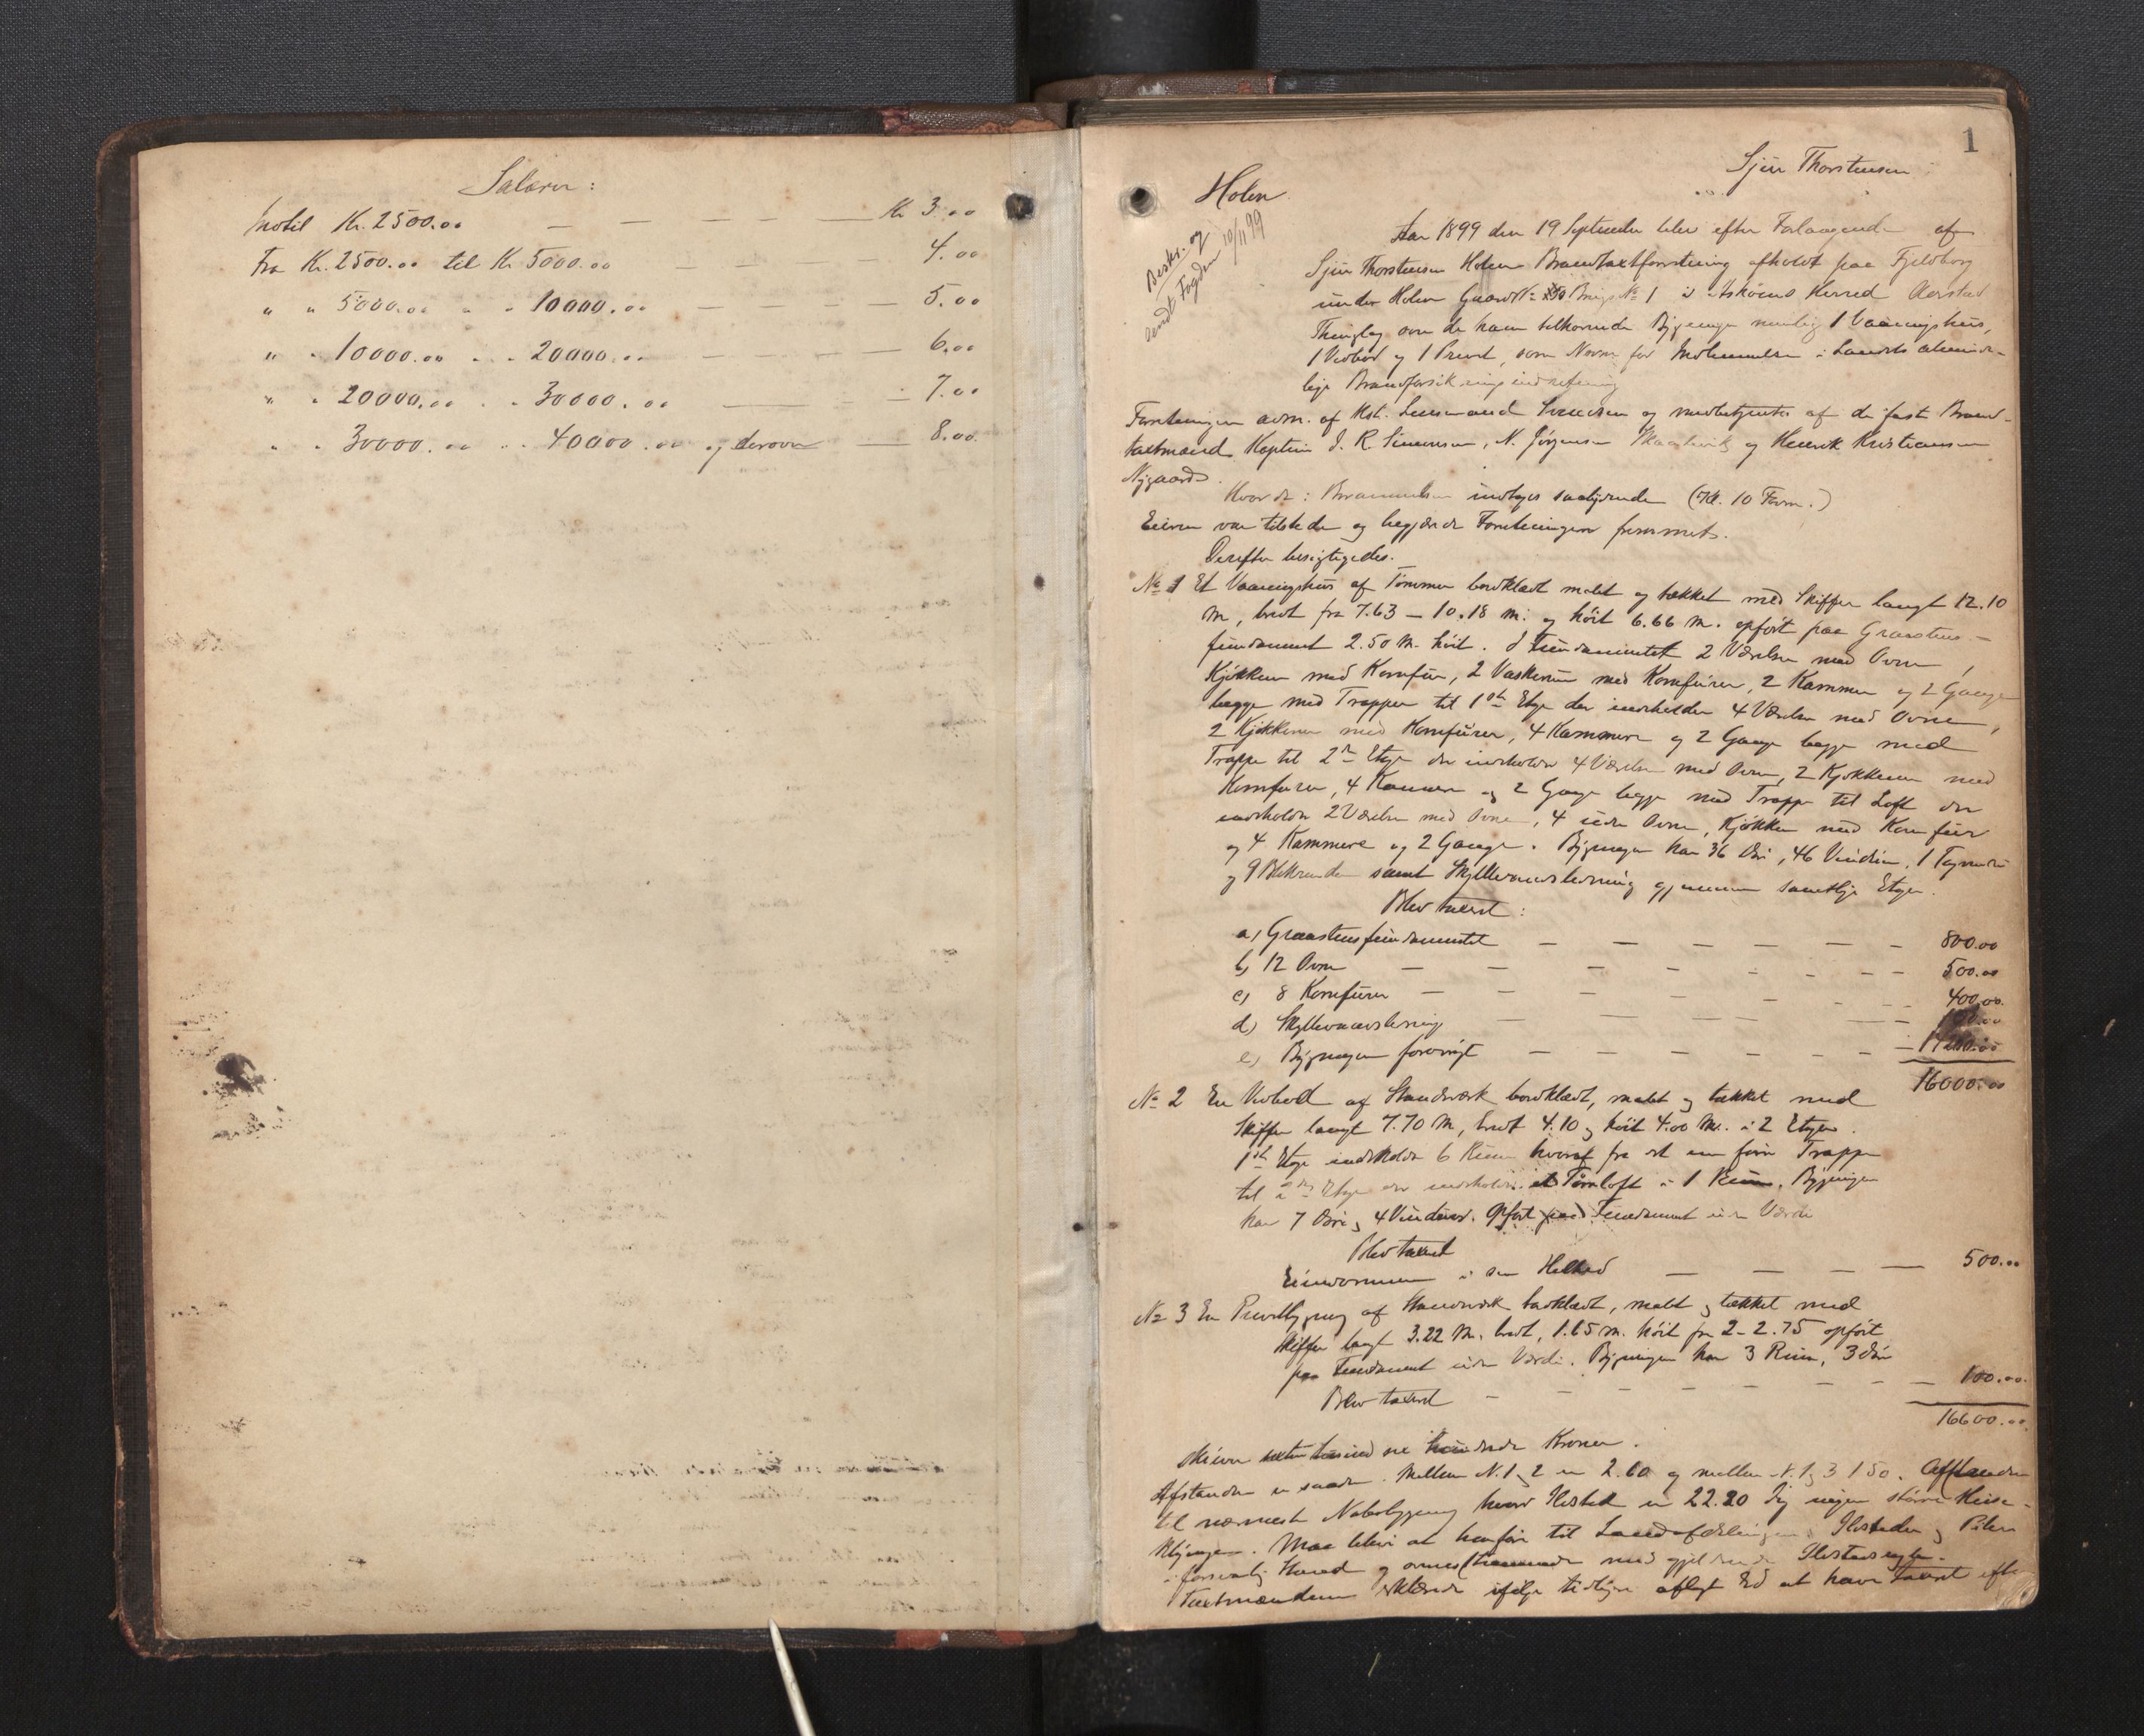 Salærer:
Indtil Kr. 2500.00 — — — — — Kr 3.00
Fra Kr. 2500.00 til Kr 5000.00 — — — 4.00
" " 5000.00 " " 10000.00 — — — — 5.00
" " 10000.00 " " 20000.00 — — — — 6.00
" " 20000.00 " " 30000.00 — — — 7.00
" " 30000.00 " " 40000.00 og derover — 8.00
1
Sjur Thorstensen
Holen
Beskr. og
sendt Fogden 10/11 99
Aar 1899 den 19 September blev efter Forlangende af
Sjur Thorstensen Holen Brandtaxtforretning afholdt paa Fjeldborg
under Holen Gaards No Brugs No 1 i Askøens Herred Aarstad
Thinglag over de ham tilhørende Bygninger nemlig 1 Vaaningshus,
1 Vedbod og 1 Privet, som for Indlemmelse i Landets alminde-
lige Brandforsikringsindretning
Forretningen adm. af Kst. Lensmand og medbetjentes af de faste Brand-
taxtmænd Kaptein J. R. Simonsen, N. Jørgensen og Henrik Kristiansen
Nygaard.
Hvorda: indtoges saalydende (Kl. 10 Form.)
Eieren var tilstede og begjærede Forretningen fremmet.
Derefter besigtigedes.
No 1 Et Vaaningshus af Tømmer bordklædt malet og tækket med Skiffer langt 12.10
M, bredt fra 7.63 – 10.18 m. og høit 6.66 M. opført paa Graastens-
fundament 2.50 M. høit. I Fundamentet 2 Værelser med Ovne,
Kjøkken med Komfur, 2 Vaskerum med Komfurer, 2 Kammer og 2 Gange
begge med Trapper til 1ste Etage der indeholder 4 Værelser med Ovne,
2 Kjøkkener med Komfurer, 4 Kammere og 2 Gange begge med
Trappe til 2den Etage der indeholder 4 Værelser med Ovne, 2 Kjøkkener med
Komfurer, 4 Kammere og 2 Gange begge med Trappe til Loft der
indeholder 2 Værelser med Ovne, 4 uden Ovne, Kjøkken med Komfur
og 4 Kammere og 2 Gange. Bygningen har 36 Døre, 46 Vinduer, 1
og 9 Blikrender samt Skyllevandsledning gjennem samtlige Etager.
Blev taxeret:
a) Graastensfundamentet — — — — — — 800.00
b) 12 Ovne — — — — — — 500.00
c) 8 Komfurer — — — — — — 400.00
d) Skyllevandsledning — — — — —
e) Bygningen forøvrigt — — — — — —
16000.00
No 2 En Vedbod af Standværk bordklædt, malet og tækket med
Skiffer langt 7.70 M, bredt 4.10 og høit 4.00 M. i 2 Etager.
1ste Etage indeholder 6 Rum hvoraf fra det ene fører Trappe
til 2den Etage der indeholder et Tørreloft i 1 Rum. Bygningen
har 7 Døre og 4 Vinduer. Opført paa Fundament uden Værdi
Blev taxeret
Eiendommen i sin Helhed — — — — 500.00
No 3 En Privetbygning af Standværk bordklædt, malet og tækket med
Skiffer langt 3.22 M. bredt, 1.65 m. høit fra 2 – 2.75 opført
paa Fundament uden Værdi. Bygningen har 3 Rum, 3 Døre
Blev taxeret — — — — — — 100.00
16600.00
skriver sexten tusind sex hundrede Kroner.
Afstanden er saadan. Mellem N. 1 og 2 er 2.60 og mellem N. 1 og 3 1.50. Afstanden
til nærmeste Nabobygning hvor Ildsted er 22.20 og ingen større Huse-
klynge. Maa blive at henføre til Landafdelingen. Ildsteder og Piber
i forsvarlig Stand og overensstemmende med gjældende
Taxtmændene erklærede ifølge tidligere aflagt Ed at have taxeret efter